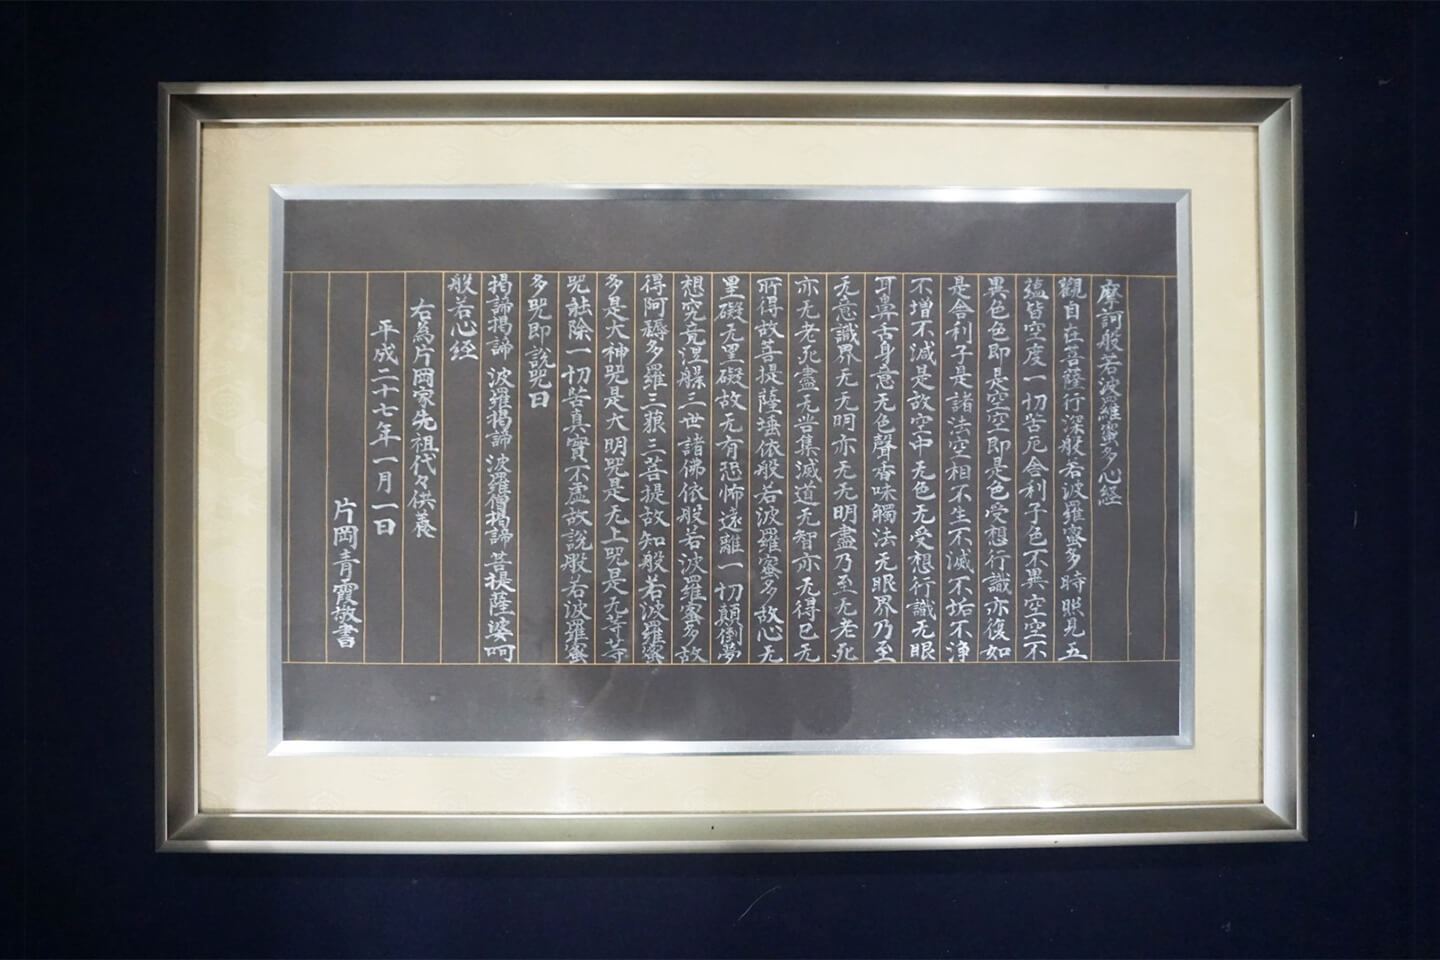 摩訶般若波羅蜜多心経
觀自在菩薩行深般若波羅蜜多時照見五
蘊皆空度一切苦厄舎利子色不異空空不
異色色即是空空即是色受想行識亦復如
是舎利子是諸法空相不生不滅不垢不浄
不増不減是故空中无色无受想行識无眼
耳鼻舌身意无色聲香味觸法无眼界乃至
无意識界无无明亦无无明盡乃至无老死
亦无老死盡无苦集滅道无智亦无得已无
所得故菩提薩埵依般若波羅蜜多故心无
罣礙无罣礙故无有恐怖遠離一切顛倒夢
想究竟涅槃三世諸佛依般若波羅蜜多故
得阿耨多羅三藐三菩提故知般若波羅蜜
多是大神咒是大明咒是无上咒是无等等
咒能除一切苦真實不虚故説般若波羅蜜
多咒即説咒曰
掲諦掲諦 波羅掲諦 波羅僧掲諦 菩提薩婆呵
般若心経
右為片岡家先祖代々供養
平成二十七年一月一日
片岡青霞敬書